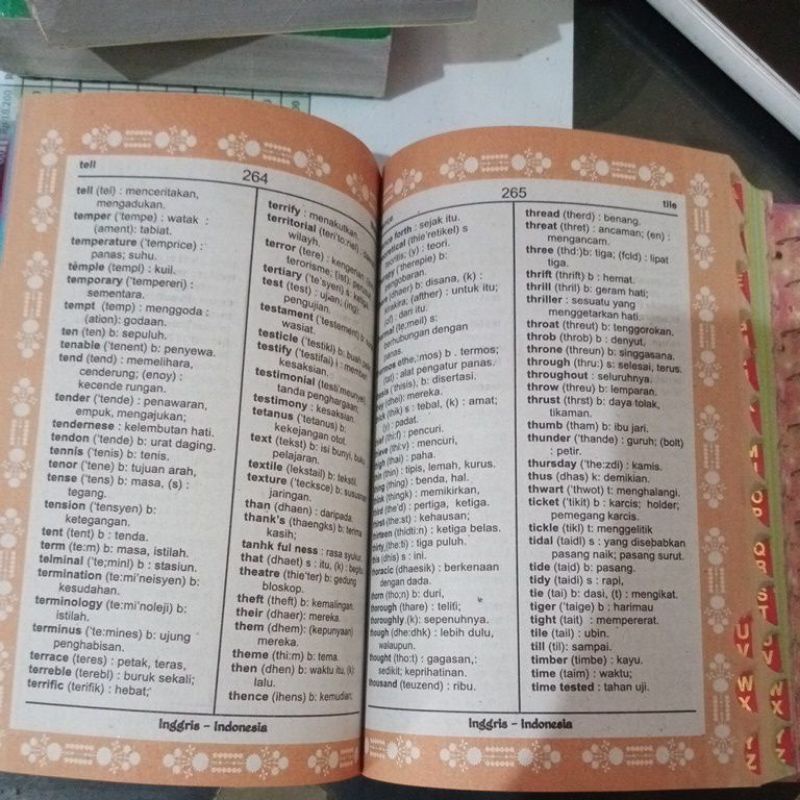 tell
264
tell (tel) : menceritakan,
mengadukan.
temper ('tempe) : watak :
(ament): tabiat.
temperature ('temprice) :
panas; suhu.
temple (templ) : kuil.
temporary ('tempereri) :
sementara.
tempt (temp) : menggoda :
(ation): godaan.
ten (ten) b: sepuluh.
tenable ('tenent) b: penyewa.
tend (tend) : memelihara,
cenderung; (enoy) :
kecende rungan.
tender ('tende) : penawaran,
empuk, mengajukan;
tendernese : kelembutan hati.
tendon ('tende) b: urat daging.
tennis ('tenis) b: tenis.
tenor ('tene) b: tujuan arah,
tense ('tens) b: masa, (s) :
tegang.
tension ('tensyen) b:
ketegangan.
tent (tent) b : tenda.
term (te:m) b: masa, istilah.
telminal ('te;minl) b : stasiun.
termination (te:mi'neisyen) b:
kesudahan.
terminology (te:mi'noleji) b:
istilah.
terminus ('te:mines) b: ujung
penghabisan.
terrace (teres) : petak, teras,
terreble (terebl) : buruk sekali;
terrific (terifik) : hebat;
terrify : menakutkan.
territorial (teri'to:riel) :
wilayh.
terror (tere) : kengerian
terorisme; (ist):
tertiary ('te'syeri) s : ketiga.
test (test) : ujian; (ing):
pengujian.
testament ('testement) b
wasiat.
testicle ('testikl) b: buah
testify ('testifai) i : member
kesaksian.
testimonial (testi'meunyel)
tanda penghargaan.
testimony : kesaksian.
tetanus ('tetanus) b:
kekejangan otot.
text (tekst) b: isi bunyi, buku
pelajaran.
textile (lekstail) b: tekstil.
texture ('tecksce) b: susunan
jaringan.
than (dhaen) : daripada.
thank's (thaengks) b: terima
kasih;
tanhk ful ness : rasa syukur.
that (dhaet) s : itu, (k) : begitu
theatre (thie'ter) b: gedung
bloskop.
theft (theft) b: kemalingan.
their (dhaer): mereka.
them (dhem): (kepunyaan)
mereka.
theme (thi:m) b: tema.
then (dhen) b: waktu itu, (k):
lalu.
thence (ihens) b: kemudian;
Inggris – Indonesia
265
tile
forth : sejak itu.
(thie'retikel) s
(y) : teori.
('therepie) b:
pengobaran.
(dhaer) b: disana, (k) :
kirakira; (afther) : untuk itu;
: dari itu.
(te;meil) s:
berhubungan dengan
panas.
ethe,'mos) b . termos;
(tat) : alat pengatur panas.
('thisis), b: disertasi.
(dhei): mereka.
(thik) s : tebal, (k) : amat;
(y) : padat.
(thi:f) : pencuri.
(thi:v) : mencuri,
(thai) : paha.
(thin) : tipis, lemah, kurus.
(thing) : benda, hal.
(thingk) : memikirkan,
(the'd) : pertiga, ketiga.
(the:st) : kehausan;
(thidti:n) : ketiga belas.
(the:ti) : tiga puluh.
(dhis) s : ini.
thoracic (dhaesik) : berkenaan
dengan dada.
thom (tho;n) b: duri,
thorough (thare) : teliti;
thoroughly (k): sepenuhnya.
though (dhe:dhk) : lebih dulu,
walaupun.
thought (tho:t) : gagasan,:
sedikit; keprihatinan.
thousand (teuzend) : ribu.
thread (therd) : benang.
threat (thret) : ancaman; (en) :
mengancam.
three (thd:)b: tiga; (fcld) : lipat
tiga.
thrift (thrift) b : hemat.
thrill (thril) b: geram hati;
thriller : sesuatu yang
menggetarkan hati.
throat (threut) b: tenggorokan.
throb (throb) b : denyut,
throne (threun) b: singgasana.
through (thru:) s: selesai, terus.
throughout : seluruhnya.
throw (threu) b: lemparan.
thrust (thrst) b: daya tolak,
tikaman.
thumb (tham) b: ibu jari.
thunder ('thande) : guruh; (bolt)
: petir.
thursday ('the:zdi) : kamis.
thus (dhas) k: demikian.
thwart ('thwot) t: menghalangi.
ticket ('tikit) b : karcis; holder;
pemegang karcis.
tickle (tikl) t: menggelitik
tidal (taidl) s : yang disebabkan
pasang naik; pasang surut.
tide (taid) b: pasang.
tidy (taidi) s : rapi,
tie (tai) b: dasi, (t) : mengikat.
tiger ('taige) b : harimau
tight (tait) : mempererat.
tile (tail) : ubin.
till (til): sampai.
timber (timbe) : kayu.
time (taim) : waktu;
time tested : tahan uji.
Inggris – Indonesia